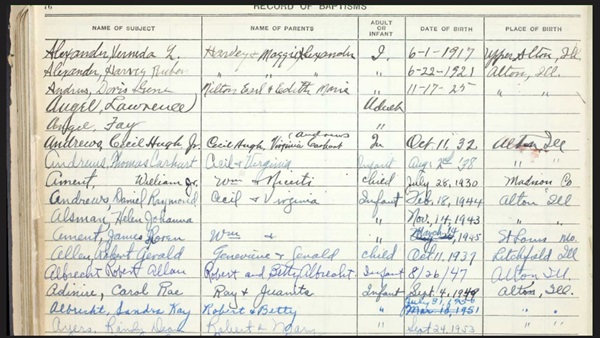 76 RECORD OF BAPTISMS
NAME OF SUBJECT NAME OF PARENTS ADULT OR INFANT DATE OF BIRTH PLACE OF BIRTH
Alexander, Vermida L. Harvey & Maggie Alexander I. 6-1-1917 Upper Alton, Ill.
Alexander, Harvey Ruben " " " " 6-22-1921 Alton, Ill.
Andrus, Doris Gene Milton Earl & Edith Marie " 11-17-25 " "
Angel Lawrence Adult
Angel, Fay "
Andrews Cecil Hugh Jr. Cecil Hugh, Virginia Carhart Andrews In Oct 11, 32 Alton, Ill
Andrews, Thomas Carhart Cecil & Virginia Infant Aug 2nd '38 " "
Ament, William Jr. Wm & child July 28, 1930 Madison Co
Andrews, Daniel Raymond Cecil & Virginia Infant Feb. 18, 1944 Alton Ill
Alsman, Helen Johanna " Nov. 14, 1943 " "
Ament, James Wm & " March 1945 St Louis Mo.
Allen, Robert Gerald Genevieve & Gerald child Oct 11, 1939 Litchfield Ill
Albrecht Robert Allan Robert and Betty Albrecht Infant 8/26/47 Alton Ill.
Adinie, Carol Rae Ray & Juanita Infant Sept. 4, 1948 Alton, Ill.
Albrecht, Sandra Kay Robert & Betty " July 31, Mar 10, 1951 " "
Ayers, Randy Dean Robert & " Sept 24, 1953 " "